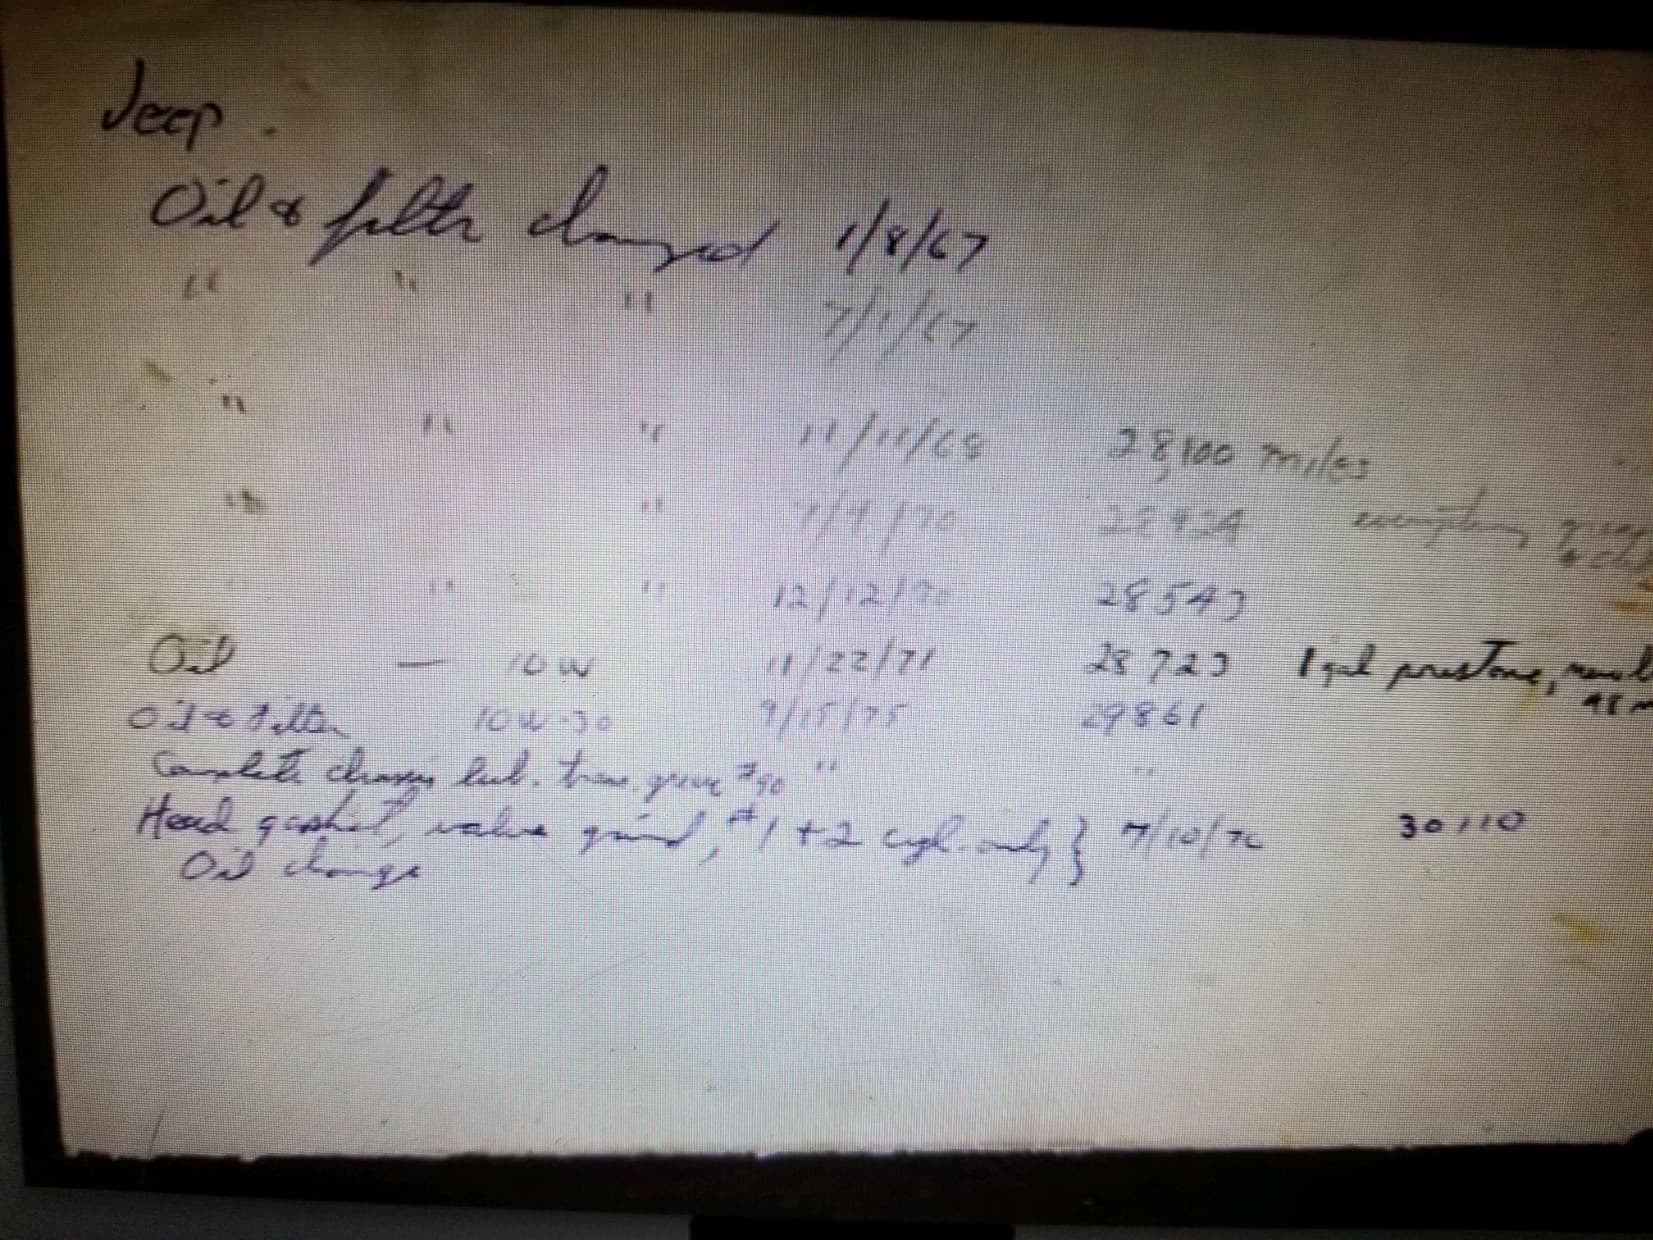 Jeep.
Oil & filter changed 1/8/67
" " " 7/1/67
" " " 11/11/68 28,100 miles
" " 7/ /70 everything
" " 12/12/70 28543
Oil — 10W 11/22/71 28723 1 gal prestone,
Oil & Filter 10W-30 9/15/75 29861
Complete chassis lub. trans. #90 " "
Head gasket, valve grind, #1 + 2 cyl. only } 7/10/76 30110
Oil change